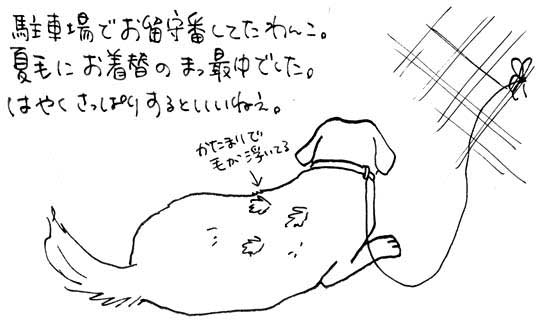 駐車場でお留守番してたわんこ。
夏毛にお着替のまっ最中でした。
はやくさっぱりするといいねぇ。
かたまりで
毛が浮いてる